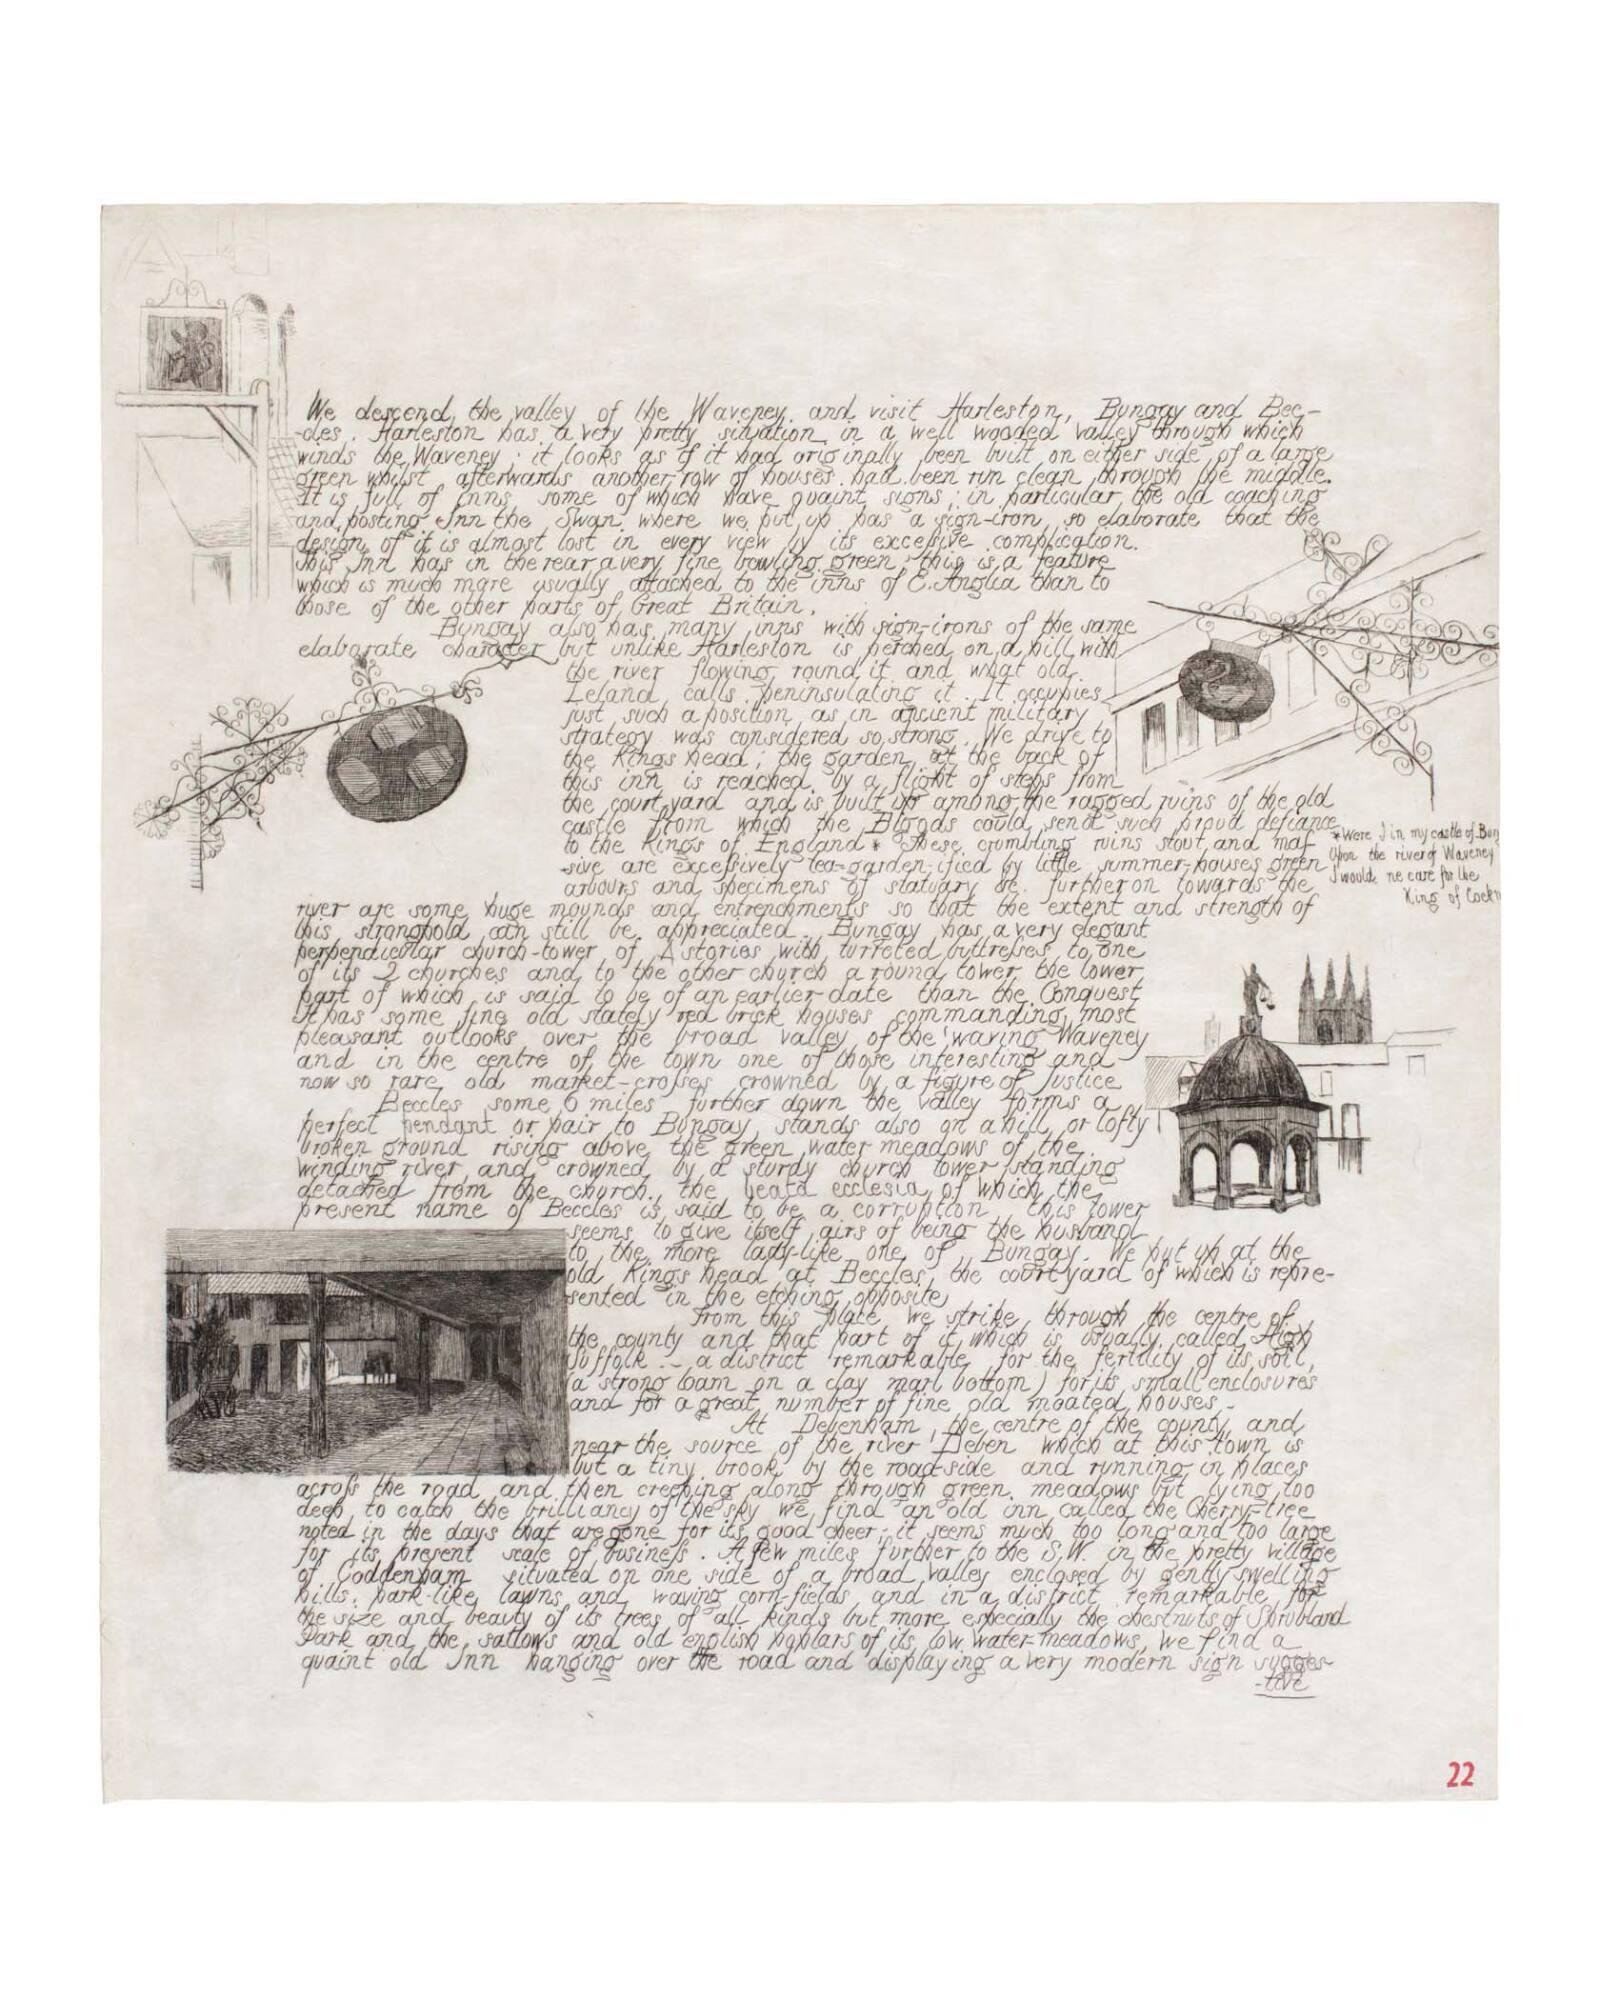 We descend the valley of the Waveney and visit Harleston, Bungay and Bec-
-cles. Harleston has a very pretty situation in a well wooded valley through which
winds the Waveney : it looks as if it had originally been built on either side of a large
green whilst afterwards another row of houses had been run clean through the middle.
It is full of Inns some of which have quaint signs ; in particular the old coaching
and posting Inn the Swan where we put up has a sign-iron so elaborate that the
design of it is almost lost in every view by its excessive complication.
This Inn has in the rear a very fine bowling green ; this is a feature
which is much more usually attached to the inns of E. Anglia than to
those of the other parts of Great Britain.
Bungay also has many inns with sign-irons of the same
elaborate character but unlike Harleston is perched on a hill with
the river flowing round it and what old
Leland calls peninsulating it. It occupies
just such a position as in ancient military
strategy was considered so strong. We drive to
the Kings head ; the garden at the back of
this inn is reached by a flight of steps from
the court-yard and is built up among the ragged ruins of the old
castle from which the Bigods could send such proud defiance
to the Kings of England * These crumbling ruins stout and mas-
-sive are excessively tea-garden-ified by little summer-houses green
arbours and specimens of statuary &c. further on towards the
river are some huge mounds and entrenchments so that the extent and strength of
this stronghold can still be appreciated. Bungay has a very elegant
perpendicular church-tower of 4 stories with turreted buttresses to one
of its 2 churches and to the other church a round tower the lower
part of which is said to be of an earlier date than the Conquest
It has some fine old stately red brick houses commanding most
pleasant outlooks over the broad valley of the 'waving Waveney
and in the centre of the town one of those interesting and
now so rare old market-crosses crowned by a figure of Justice
Beccles some 6 miles further down the valley forms a
perfect pendant or pair to Bungay, stands also on a hill or lofty
broken ground rising above the green water meadows of the
winding river and crowned by a sturdy church tower standing
detached from the church. the beata ecclesia of which the
present name of Beccles is said to be a corruption this tower
seems to give itself airs of being the husband
to the more lady-like one of Bungay. We put up at the
old Kings head at Beccles, the court-yard of which is repre-
sented in the etching opposite
From this place we strike through the centre of
the county and that part of it which is usually called High
Suffolk - a district remarkable for the fertility of its soil,
(a strong loam on a clay marl bottom) for its small enclosures
and for a great number of fine old moated houses -
At Debenham, the centre of the county and
near the source of the river Deben which at this town is
but a tiny brook by the road-side and running in places
across the road and then creeping along through green meadows but lying too
deep to catch the brilliancy of the sky we find an old inn called the Cherry-tree
noted in the days that are gone for its good cheer ; it seems much too long and too large
for its present scale of business. A few miles further to the S.W. in the pretty village
of Coddenham situated on one side of a broad valley enclosed by gently swelling
hills, park-like lawns and waving corn-fields and in a district remarkable for
the size and beauty of its trees of all kinds but more especially the chestnuts of Shrubland
Park and the sallows and old english poplars of its low water-meadows, we find a
quaint old Inn hanging over the road and displaying a very modern sign sugges-
-tive
* Were I in my castle of Bun
Upon the river of Waveney
I would ne care for the
King of Cockn
22